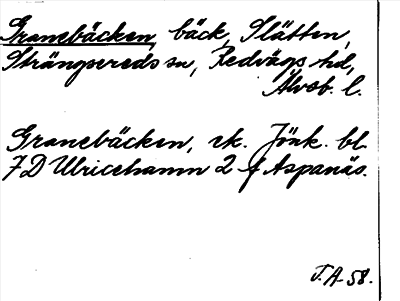 Granebäcken, bäck, Slätten,
Strängsereds sn, Redvägs hd,
Älvsb. l.
Granebäcken, rk. Jönk. bl.
7D Ulricehamn 2 f Aspanäs.
J.A-58.